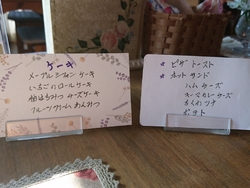 ケーキ
メープルシフォンケーキ
いちごのロールケーキ
柚はちみつ チーズケーキ
フルーツクリームあんみつ
ピザトースト
ホットサンド
ハムチーズ
ちくわツナ
ポテト